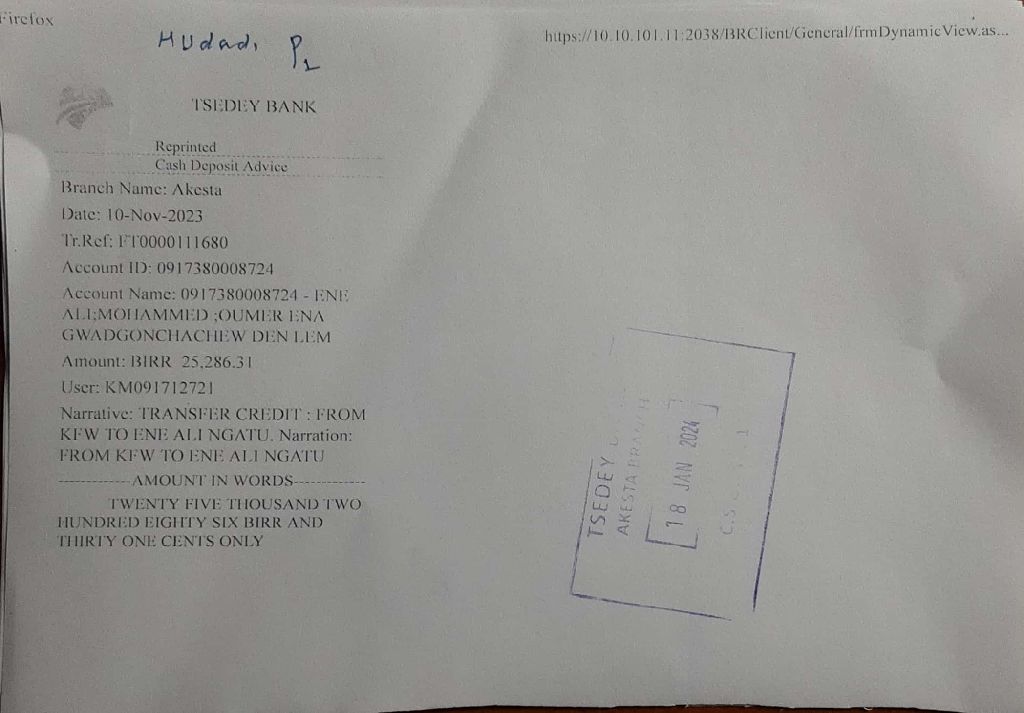 Firefox
https://10.10.101.11:2038/BRClient/General/frmDynamicView.as...
Hudad, P1
TSEDEY BANK
Reprinted
Cash Deposit Advice
Branch Name: Akesta
Date: 10-Nov-2023
Tr.Ref: FT0000111680
Account ID: 0917380008724
Account Name: 0917380008724 - ENE
ALI;MOHAMMED ;OUMER ENA
GWADGONCHACHEW DEN LEM
Amount: BIRR 25,286.31
User: KM091712721
Narrative: TRANSFER CREDIT : FROM
KFW TO ENE ALI NGATU. Narration:
FROM KFW TO ENE ALI NGATU
-------------AMOUNT IN WORDS-------------
TWENTY FIVE THOUSAND TWO
HUNDRED EIGHTY SIX BIRR AND
THIRTY ONE CENTS ONLY
TSEDEY
AKESTA BRANCH
18 JAN 2024